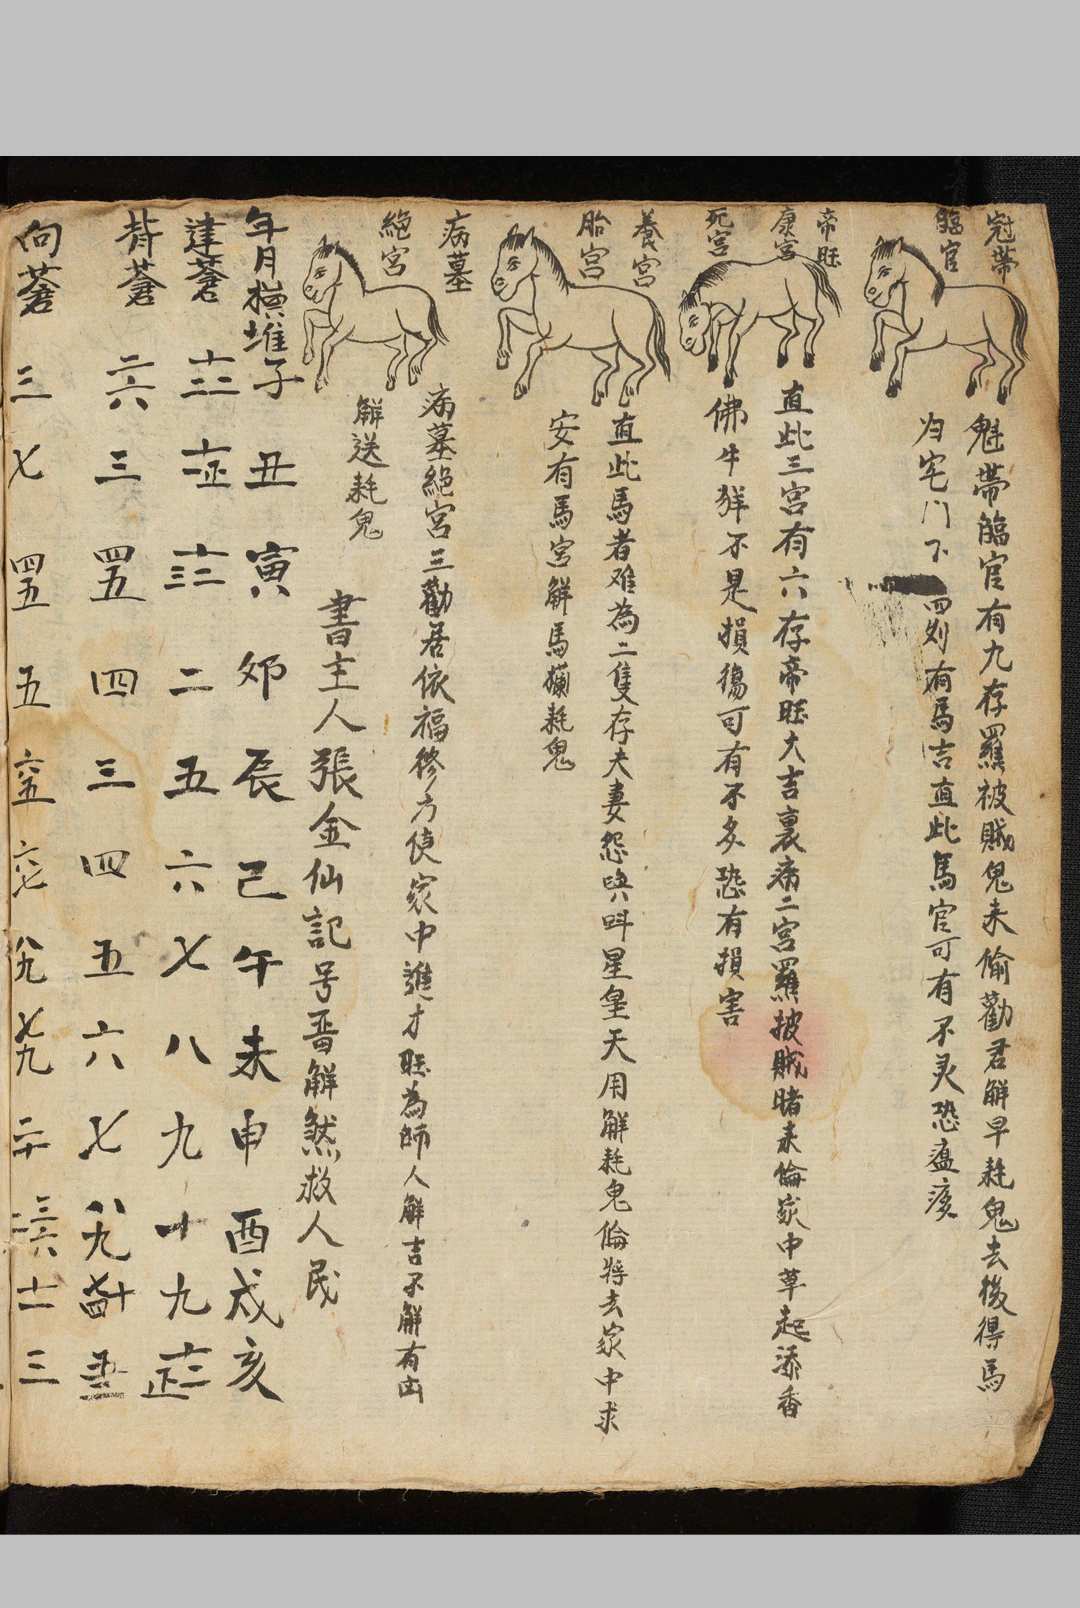 冠帶
臨官
魁帶臨官有九存羅被賊鬼未偷勸君解早耗鬼去後得馬
归宅门下 四列有馬吉直此馬官可有不灵恐瘟疫
帝旺
康宮
死宮
直此三宮有六存帝旺大吉裏病二宮羅披賊睹未偷家中草起添香
佛牛牂不是損傷可有不多恐有損害
養宮
胎宮
直此馬者难為二隻存夫妻怨 呌星皇天用解耗鬼偷將去家中求
安有馬宮解馬 耗鬼
病墓
絕宮
病墓絕宮三勸居依福修方使家中進才旺為師人解吉不解有凶
解送耗鬼
書主人張金仙記号晋解煞救人民
年月橫堆子 丑 寅 卯 辰 己 午 未 申 酉 戌 亥
建蒼 十二 十正 十二三 二 五 六 七 八 九 十 九 十二正
背蒼 二六 三 四五 四 三 四 五 六 七 八九
向蒼 三 七 四五 五 六五 六七 八九 七九 二十 三六 十一 三